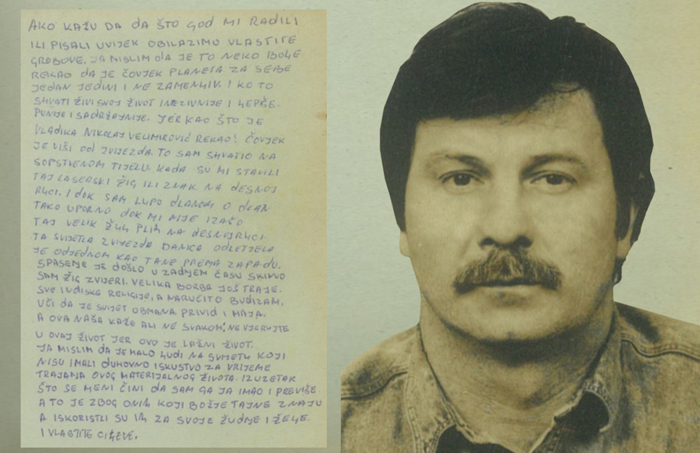 AKO KAŽU DA DA ŠTO GOD MI RADILI
ILI PISALI UVIJEK OBILAZIMO VLASTITE
GROBOVE. JA MISLIM DA JE TO NEKO BOLJE
REKAO DA JE ČOVJEK PLANETA ZA SEBE
JEDAN JEDINI I NE ZAMENLJIV. I KO TO
SHVATI ŽIVI SVOJ ŽIVOT INTEZIVNIJE I LEPŠE.
PUNIJE I SADRŽAJNIJE. JER KAO ŠTO JE
VLADIKA NIKOLAJ VELIMIROVIĆ REKAO! ČOVJEK
JE VIŠI OD ZVIJEZDA. TO SAM SHVATIO NA
SOPSTVENOM TIJELU. KADA SU MI STAVILI
TAJ LASERSKI ŽIG ILI ZNAK NA DESNOJ
RUCI. I DOK SAM LUPO DLANOM O DLAN
TAKO UPORNO DOK MI NIJE IZAŠO
TAJ VELIK ŽULJ PLIK NA DESNOJ RUCI
TA SVIJETLA ZVIJEZDA DANICA ODLETJELA
JE ODJEDNOM KAO TANE PREMA ZAPADU.
SPASENJE JE DOŠLO U ZADNJEM ČASU SKINUO
SAM ŽIG ZVIJERI. VELIKA BORBA JOŠ TRAJE.
SVE INDISKE RELIGIJE, A NARUČITO BUDIZAM,
UČI DA JE SVIJET OBMANA, PRIVID I MAJA.
A OVA NAŠA KAŽE ALI NE SVAKOM, NE VJERUJTE
U OVAJ ŽIVOT JER OVO JE LAŽNI ŽIVOT.
JA MISLIM DA JE MALO LJUDI NA SVIJETU KOJI
NISU IMALI DUHOVNO ISKUSTVO ZA VRIJEME
TRAJANJA OVOG MATERIJALNOG ŽIVOTA. IZUZETAK
ŠTO SE MENI ČINI DA SAM GA JA IMAO I PREVIŠE
A TO JE ZBOG ONIH KOJI BOŽJE TAJNE ZNAJU
A ISKORISTILI SU IH ZA SVOJE ŽUDNJE I ŽELJE.
I VLASTITE CILJEVE.